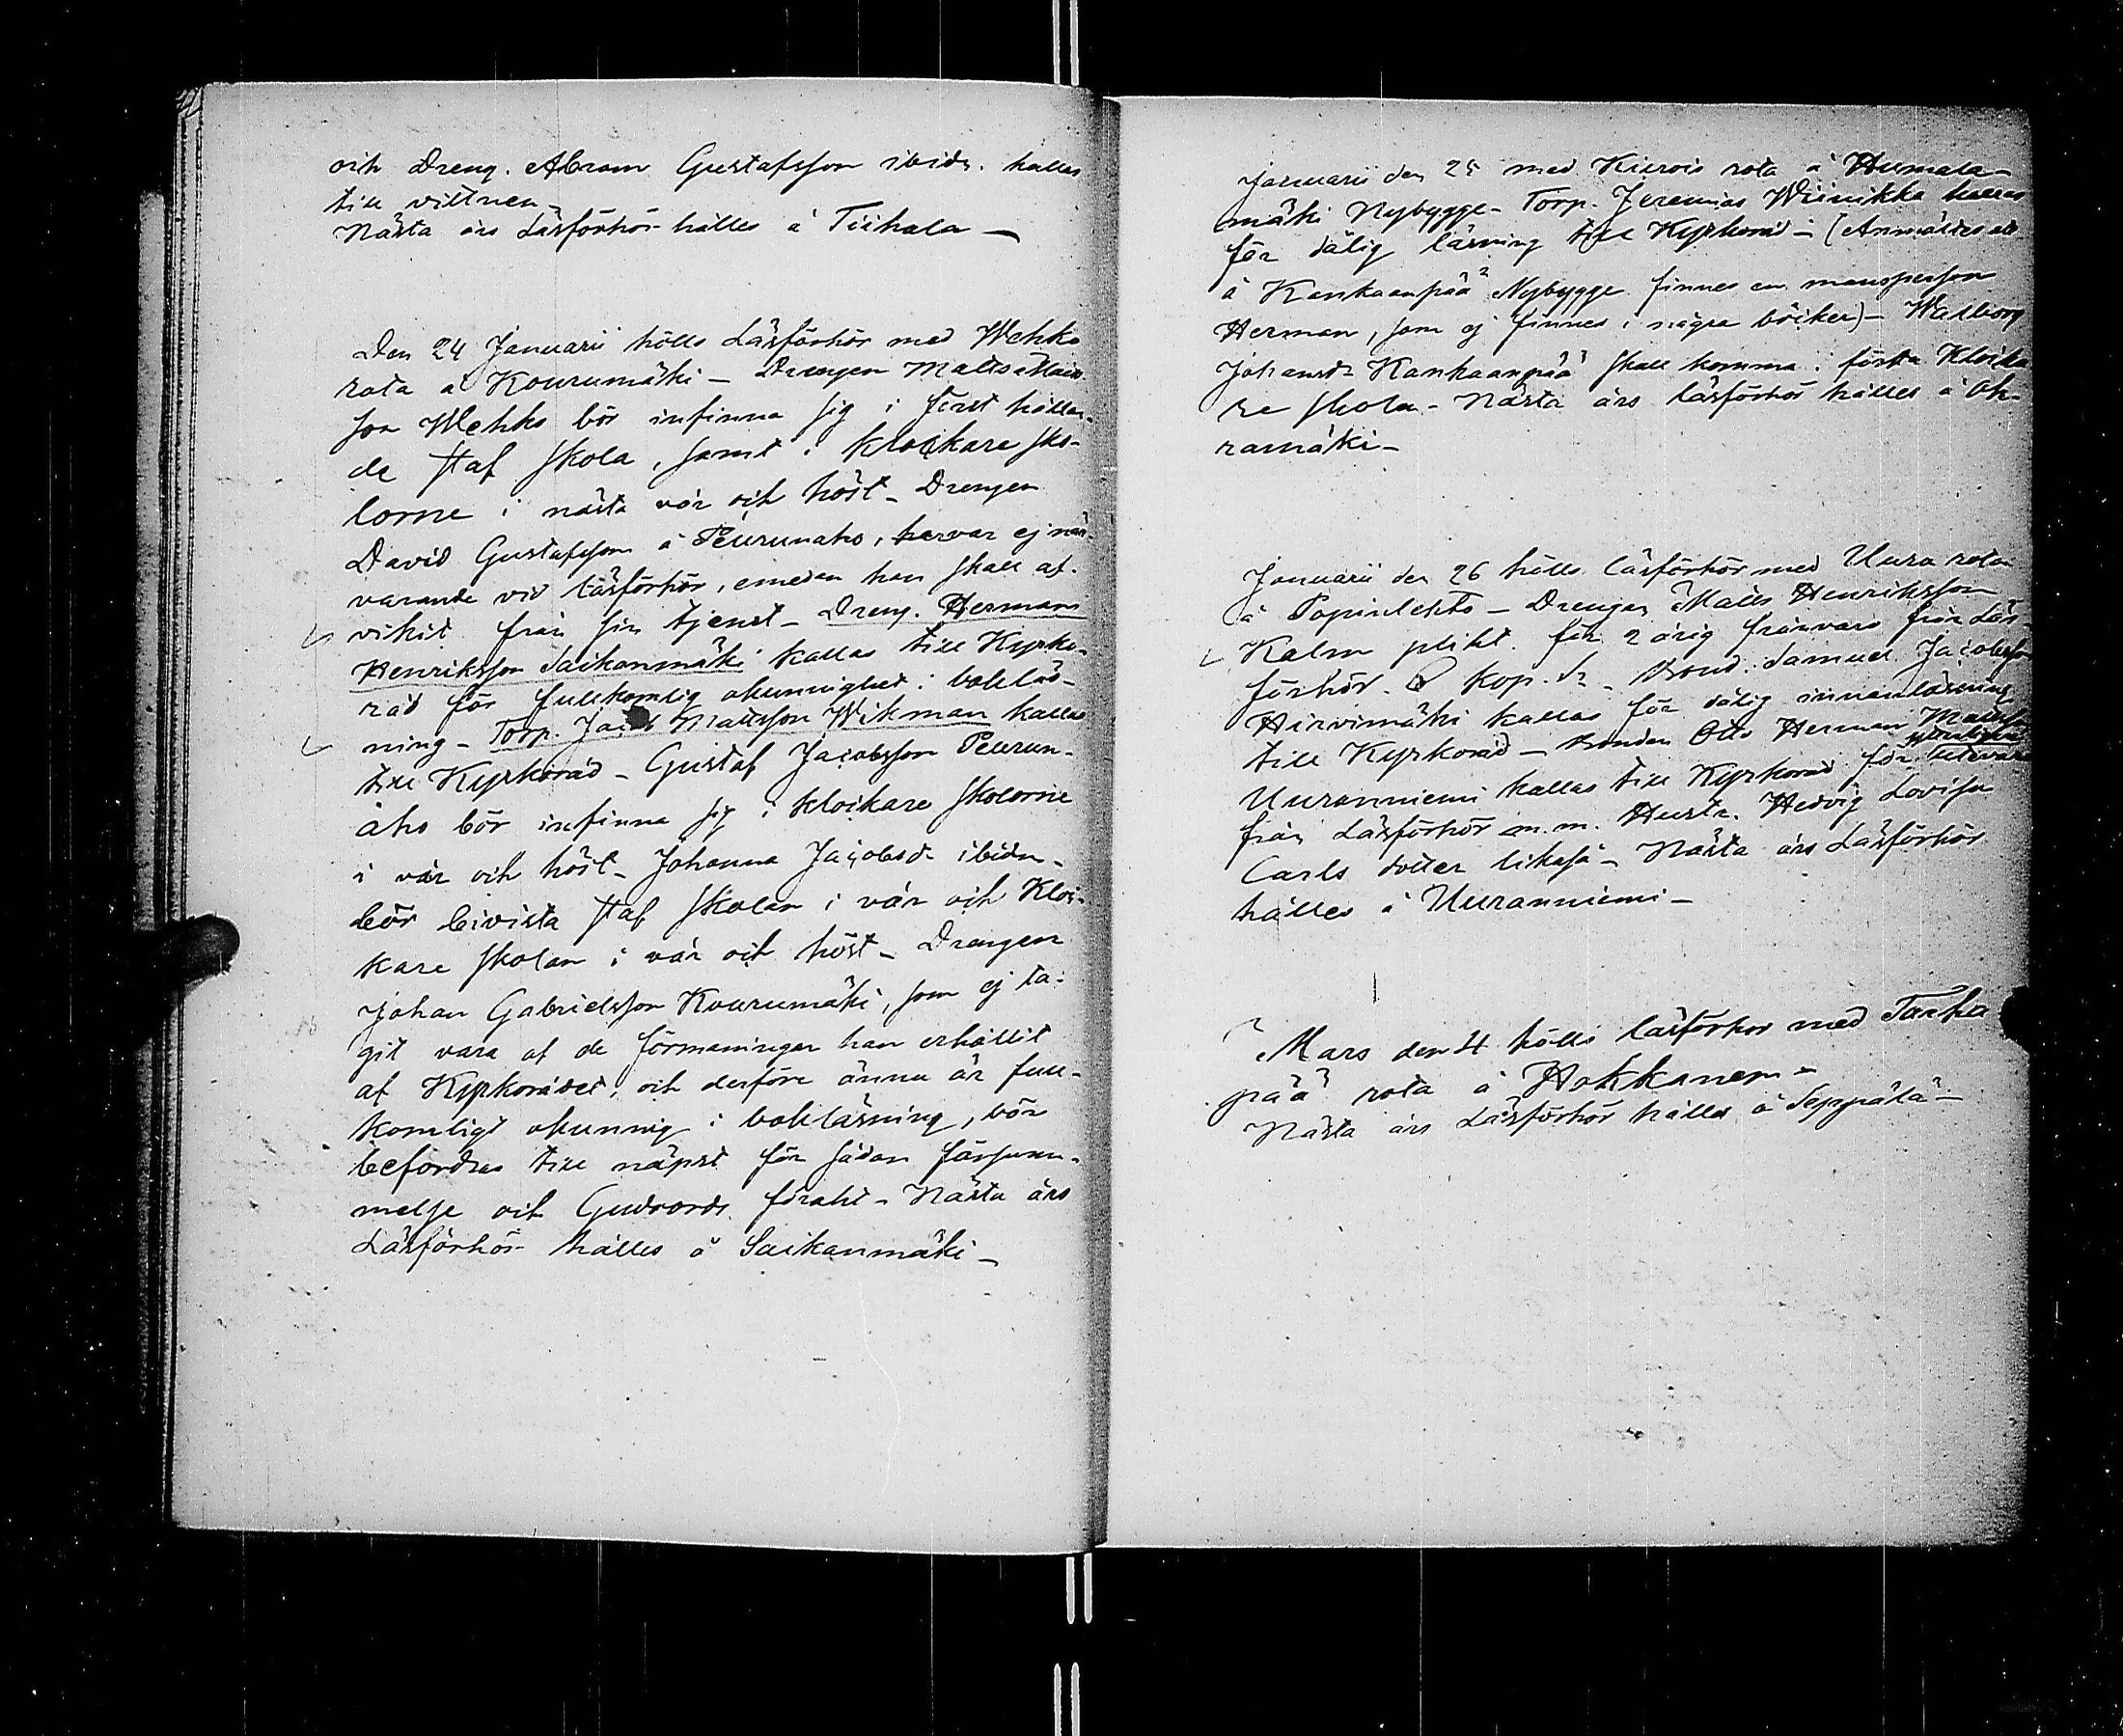 och Dreng. Abram Gustafsson ibidm. kallas
till vittnen
Nästa års Läsförhör hålles å Tiihala —
Den 24 Januarii hölls Läsförhör med Wehko
rota å Kourumäki — Drengen Matts
son Wehko bör infinna sig i först hållan-
de staf skola, samt i klockare sko-
lorne i nästa vår och höst — Drengen
David Gustafsson å Peurunaho, har var ej när-
varande vid läsförhör, emedan han skall af-
vikit från sin tjenst — Dreng. Hermann
Henriksson Saikanmäki kallas till Kyrko-
råd för fullkomlig okunnighet i bokläs-
ning — Torp. Jacob Mattsson Wikman kallas
till Kyrkoråd — Gustaf Jacobsson Peurun-
aho bör infinna sig i klockare skolorne
i vår och höst — Johanna Jacobsdr ibidm —
bör bivista staf skolan i vår och Kloc-
kare skolan i vår och höst — Drengen
Johan Gabrielsson Kourumäki, som ej ta-
git vara af de förmaningar han erhållit
af Kyrkorådet, och derföre ännu är full-
komligt okunnig i bokläsning, bör
befordras till näpst för sådan försum-
melse och Gudsords förakt — Nästa års
Läsförhör hålles å Saikanmäki —
Januarii den 25 med Kiirois rota å Humala-
mäki Nybygge — Torp. Jeremias Wiinikka kallas
för dålig läsning till Kyrkoråd — (Anmäldes att
å Kankaanpää Nybygge finnes en mansperson
Herman, som ej finnes i några böcker) — Walborg
Johansdr Kankaanpää skall komma i första Klocka
re skola — Nästa års läsförhör hålles å Ok-
ramäki —
Januarii den 26 hölls läsförhör med Uura rota
å Popinlehto — Drengen Matts Henriksson
Kalm plikt. för 2 årig frånvaro från Läs-
förhör. Kop. — Bond. Samuel Jacobsson
Hirvimäki kallas för dålig innanläsning
till Kyrkoråd — Bonden Otto Herman Mattsson
Uuranniemi kallas till Kyrkoråd för
från Läsförhör m.m. Hustr. Hedvig Lovisa
Carls dotter likaså — Nästa års Läsförhör
hålles å Uuranniemi —
Mars den 4 hölls läsförhör med Tarha
pää rota å Hokkanen —
Nästa års Läsförhör hålles å Seppälä —